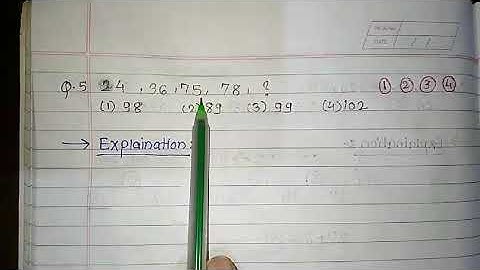 DATE
Q.5 24 , 36 , 75 , 78 , ?
① ② ③ ④
(1) 98 (2) 89 (3) 99 (4) 102
→ Explaination: